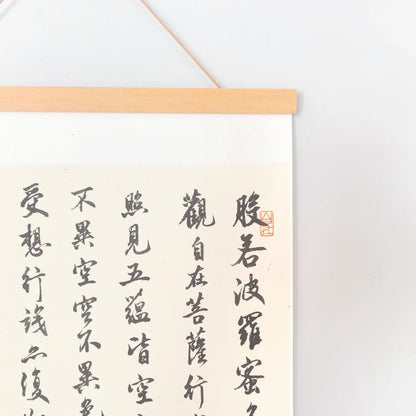 般若波羅蜜
觀自在菩薩行
照見五蘊皆空
不異空空不異色
受想行識亦復